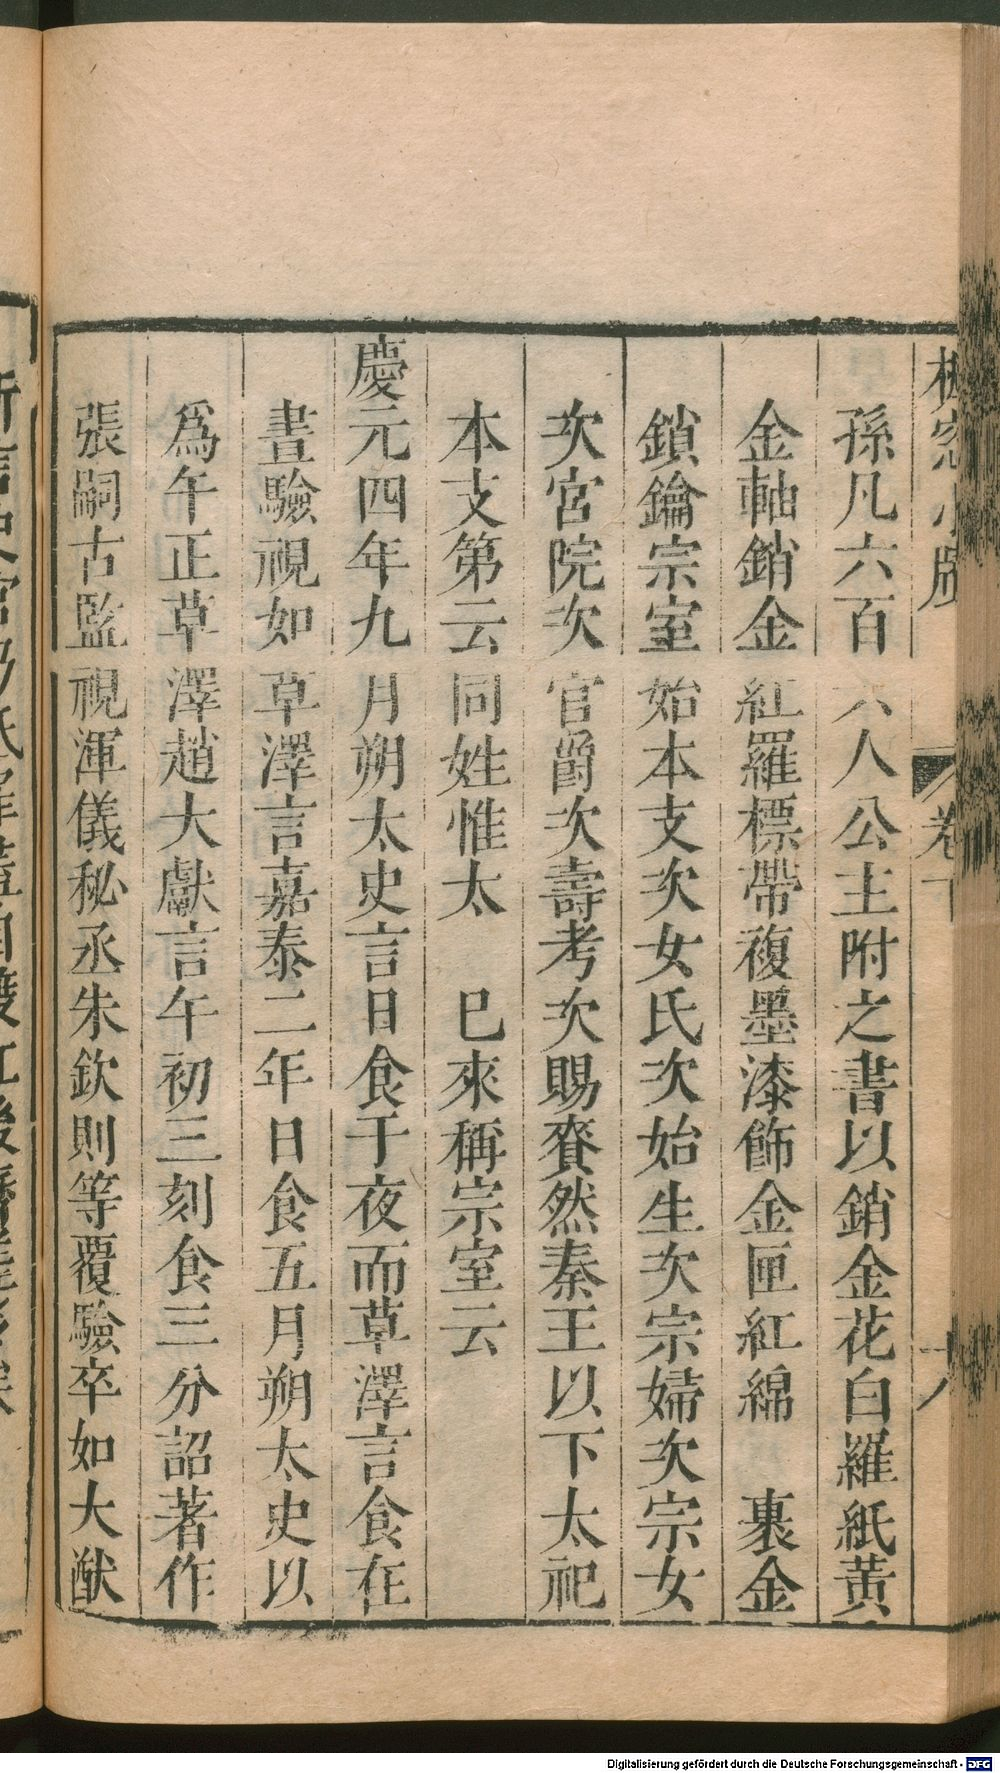 孫凡六百六人公主附之書以銷金花白羅紙黃
金軸銷金紅羅標帶複墨漆飾金匣紅綿　裹金
鎖鑰宗室始本支次女氏次始生次宗婦次宗女
次宮院次官爵次壽考次賜賚然秦王以下太祀
本支第云同姓惟太　巳來稱宗室云
慶元四年九月朔太史言日食于夜而草澤言食在
晝驗視如草澤言嘉泰二年日食五月朔太史以
爲午正草澤趙大獻言午初三刻食三分詔著作
張嗣古監視渾儀秘丞朱欽則等覆驗卒如大猷
卷下
十八
Digitalisierung gefördert durch die Deutsche Forschungsgemeinschaft - DFG